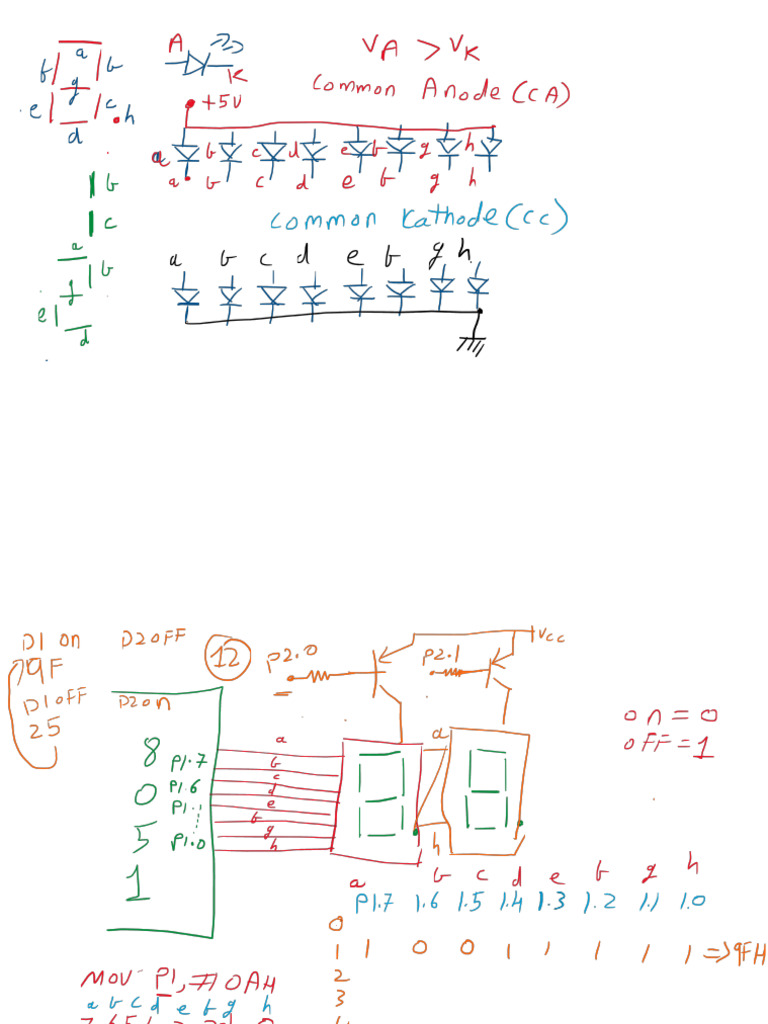 a
f b
g
e c
.h
d
A K
VA > VK
Common Anode (CA)
+5V
a b c d e f g h
a b c d e f g h
Common Kathode (CC)
b
c
a
b
g
e
d
a b c d e f g h
D1 on D2 OFF
12
P2.0
P2.1
Vcc
9F
D1 off D2 on
25
on = 0
OFF = 1
8051
P1.7
P1.6
P1.
P1.0
a
b
c
d
e
f
g
h
a
h
a b c d e f g h
P1.7 1.6 1.5 1.4 1.3 1.2 1.1 1.0
0
1 1 0 0 1 1 1 1 1 => 9FH
2
3
MOV P1, #0AH
a b c d e f g h